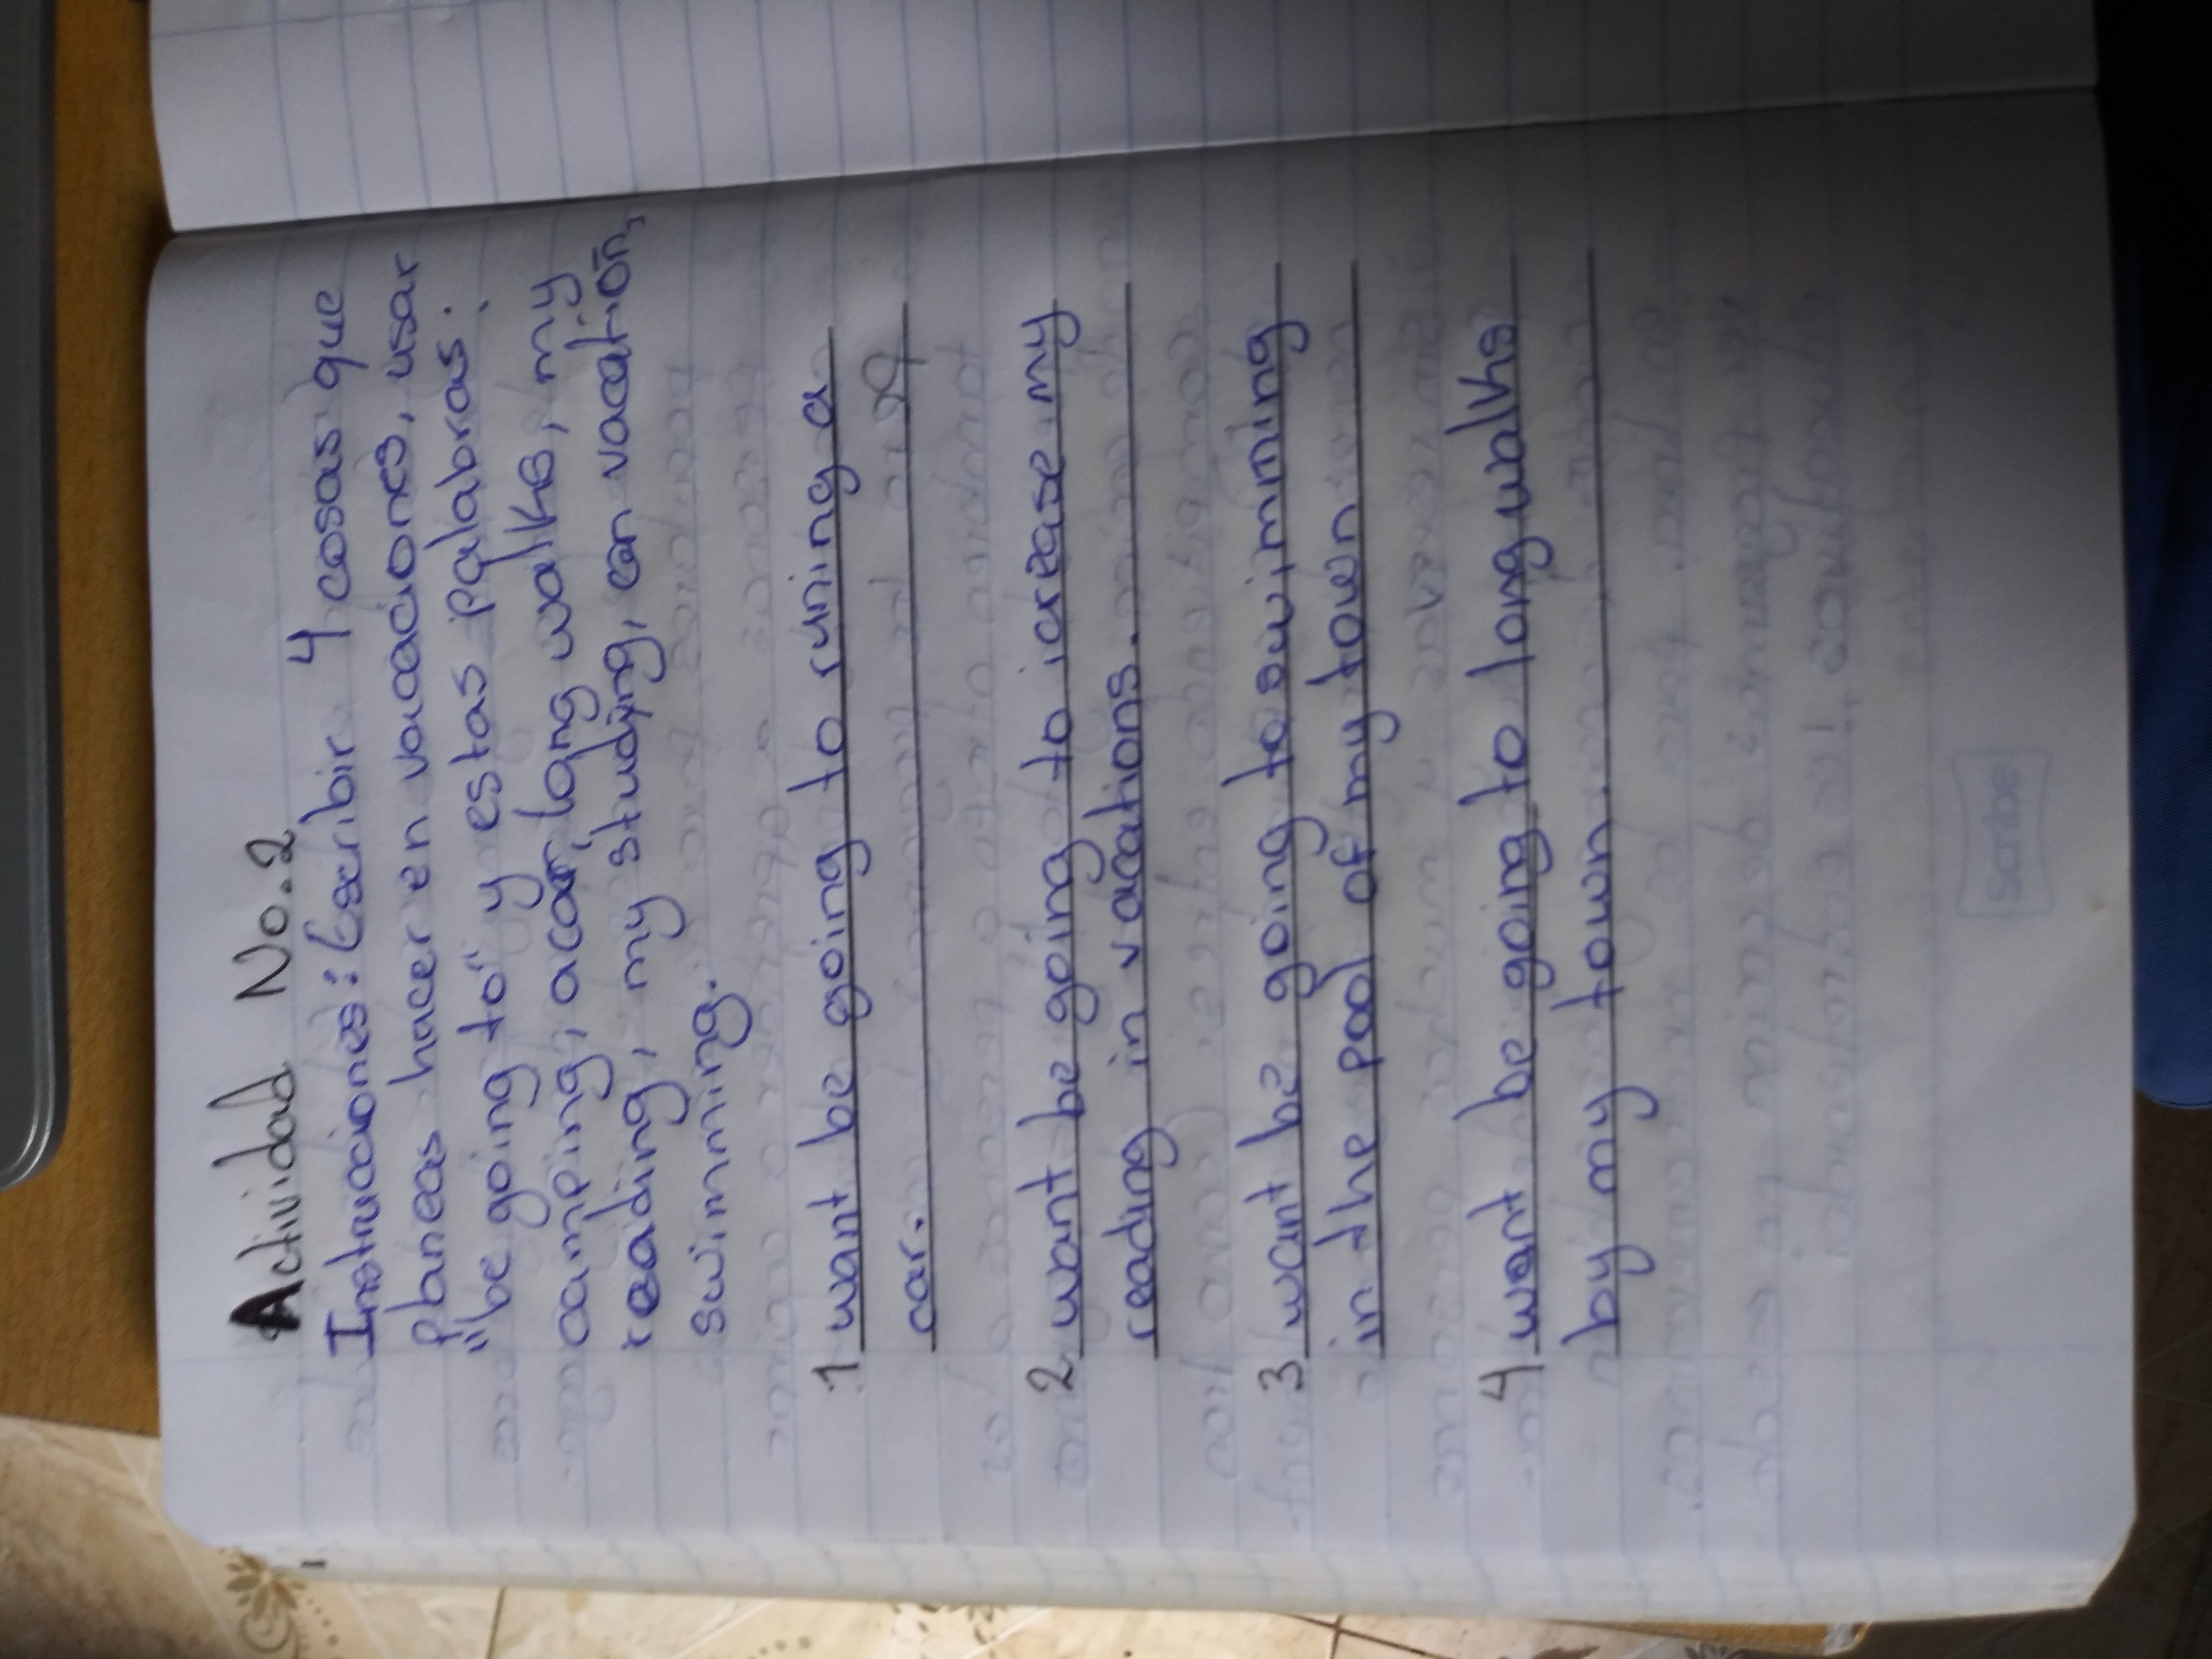 Actividad No.2
Instrucciones: Escribir 4 cosas que
planeas hacer en vacaciones, usar
"be going to" y estas palabras:
camping, a car, long walks, my
reading, my studying, on vacation,
swimming.
1 want be going to runing a
car.
2 want be going to icrease my
reading in vacations.
3 want be going to swimming
in the pool of my town
4 want be going to long walks
by my town.
Scribe